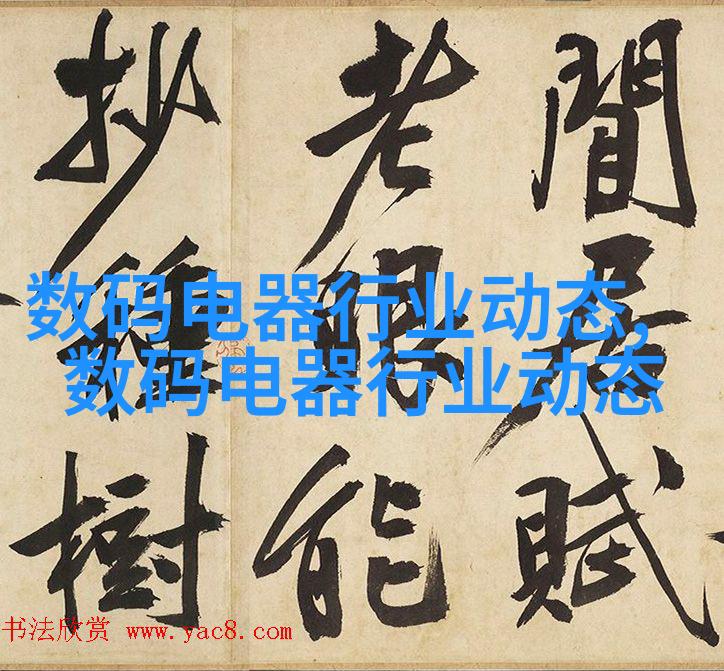 閒居賦
老眼能
抄種樹
数码电器行业动态,
数码电器行业动态
书法欣赏 www.yac8.com